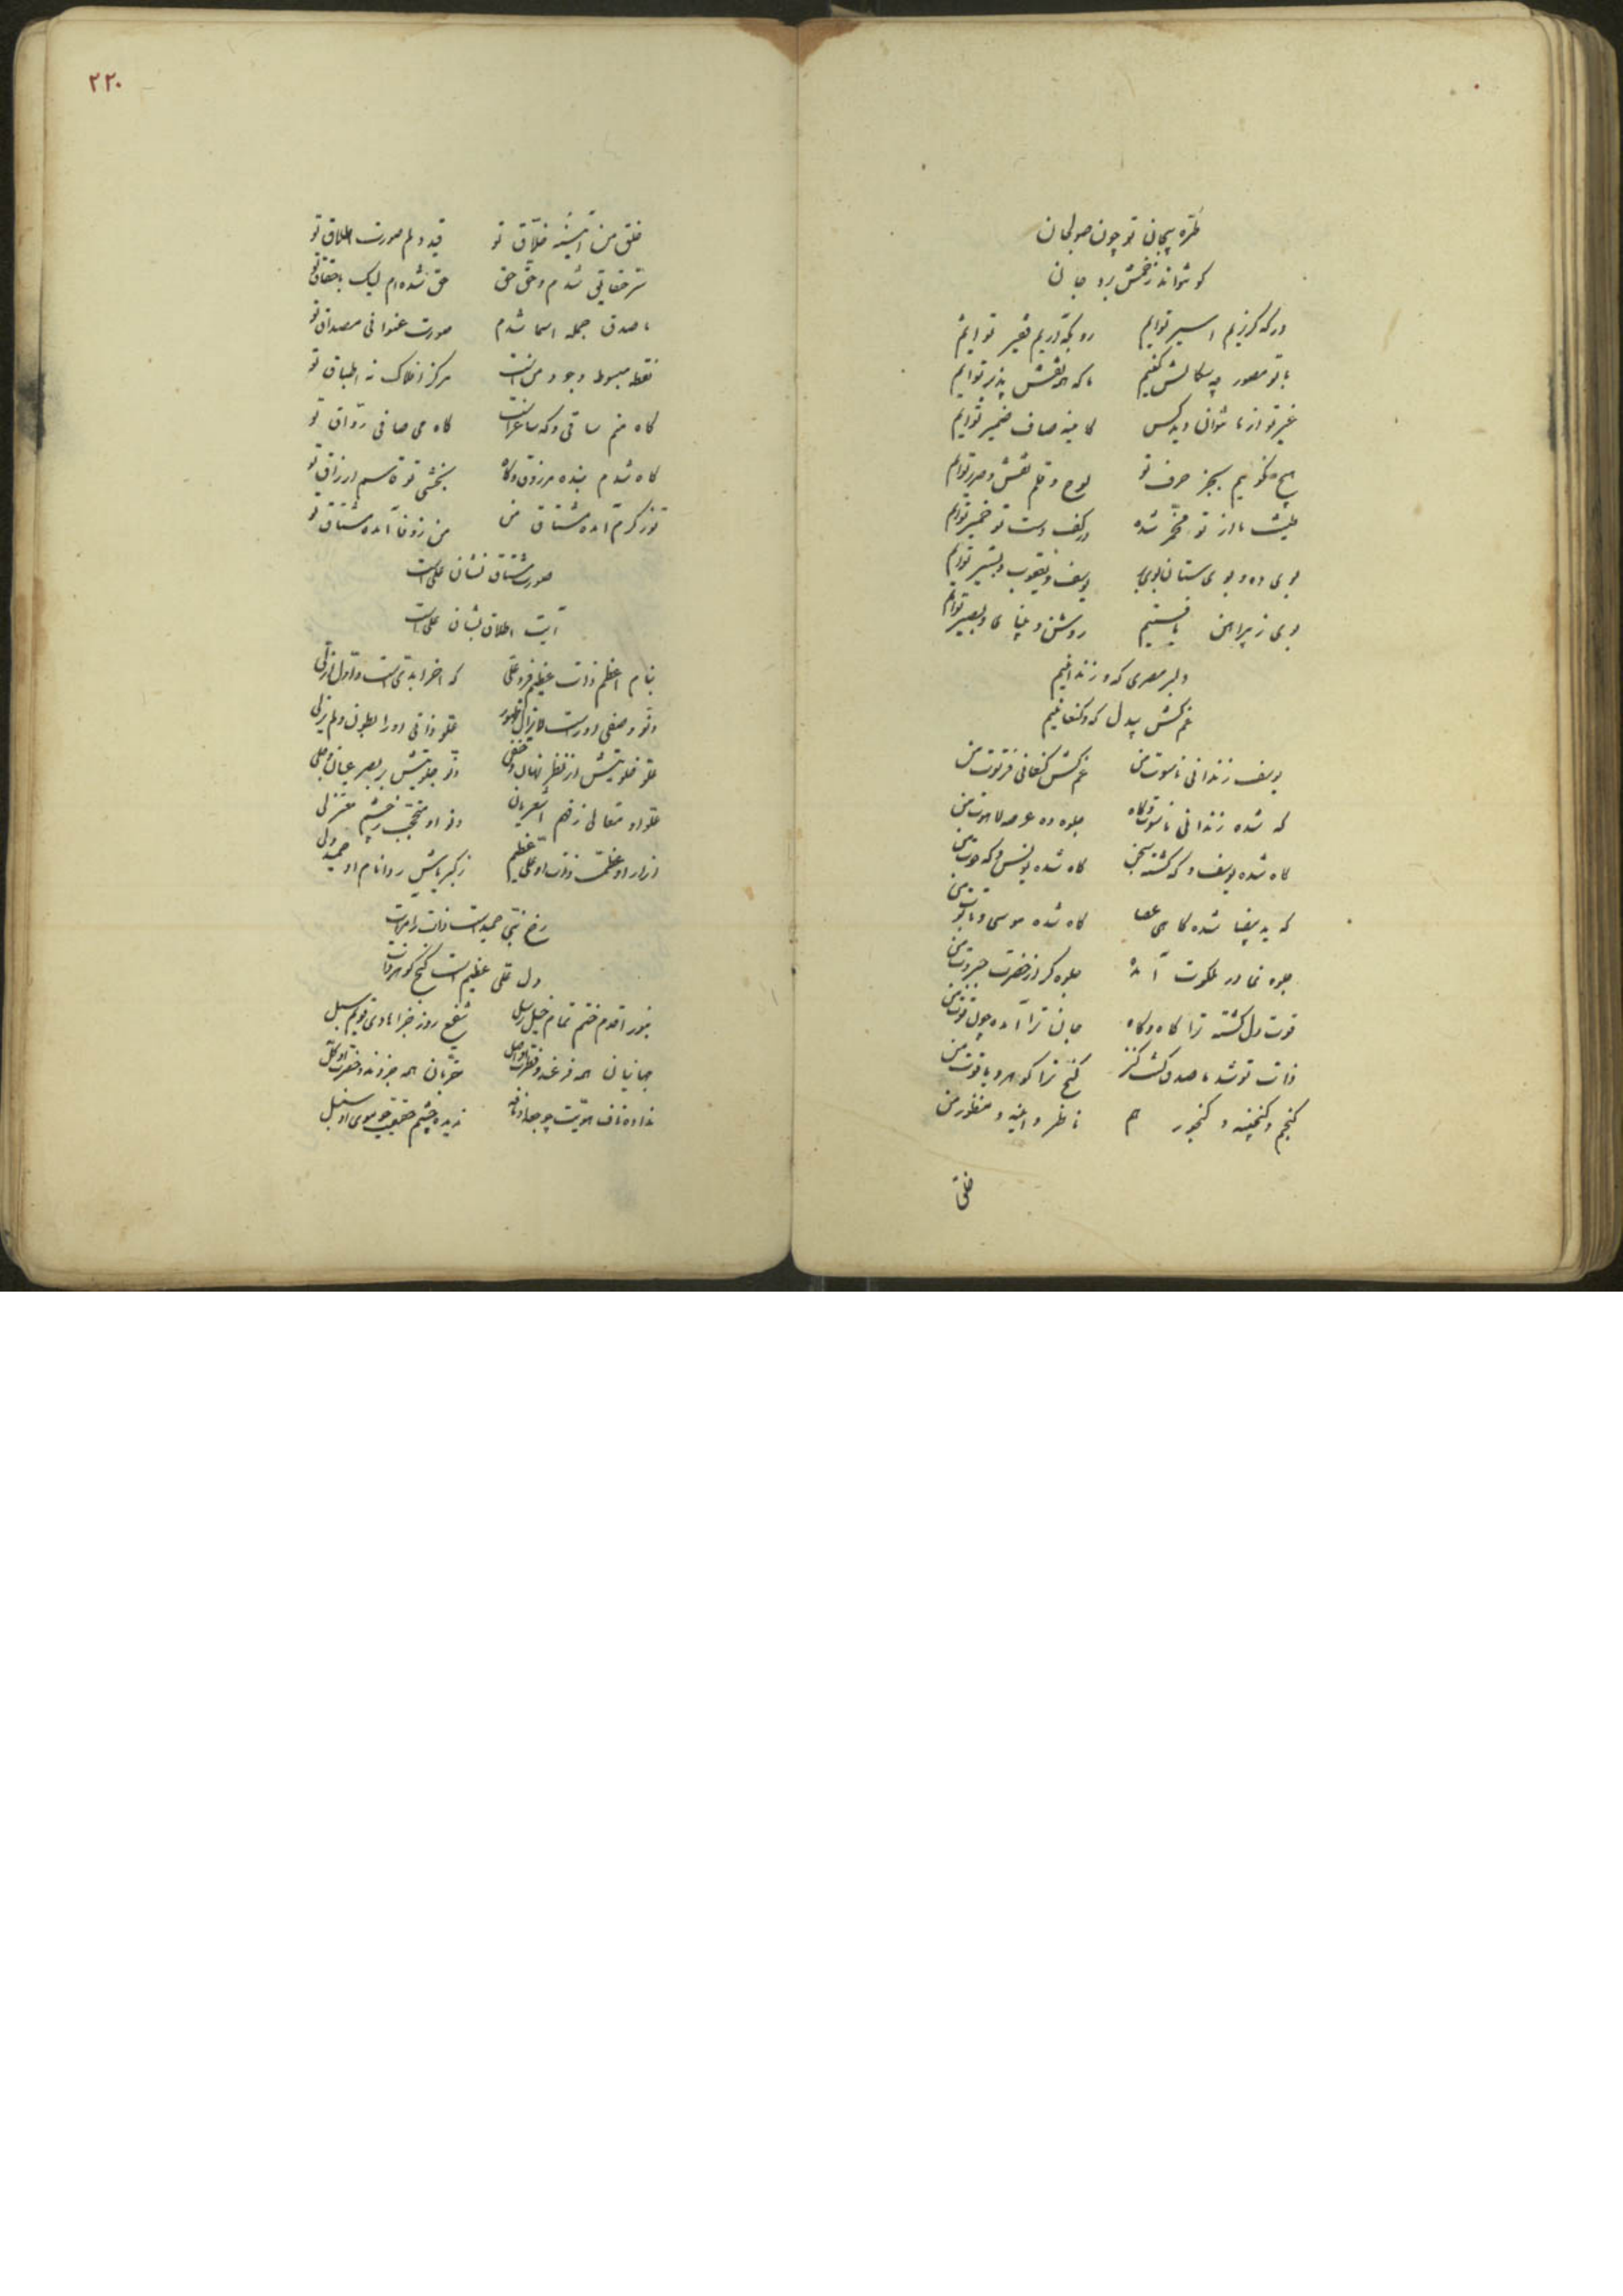 طره پیچان تو چون صولجان
کو تواند زخمش برد جان
در که گریزیم اسیر توایم
رو بکه آریم فقیر توایم
با تو مصور چه سکالش کنیم
ما که همه نقش پذیر توایم
غیر تو از ما نتوان دید کس
کاینه صاف ضمیر توایم
هیچ نگوییم بجز حرف تو
لوح و قلم نقش و صریر توایم
طینت ما از تو مخمر شده
در کف دست تو خمیر توایم
بوی ده و بوی ستان بوی بر
یوسف و یعقوب و بشیر توایم
بوی ز پیراهن یافتیم
روشن و بینای و بصیر توایم
دلبر مصری که و زندانیم
غم کش بیدل که و کنعانیم
یوسف زندانی ناسوت من
غم کش کنعانی فرتوت من
که شده زندانی ناسوت و گاه
جلوه ده عرصه لاهوت من
گاه شده یوسف و که گشته سجن
گاه شده یونس و که حوت من
که ید بیضا شده گاهی عصا
گاه شده موسی و تابوت من
جلوه نما در ملکوت آمده
جلوه گر از حضرت جبروت من
قوت دل گشته ترا گاه و گاه
جان ترا آمده چون قوت من
ذات تو شد ما صدق کنت کنز
گنج ترا گوهر و یاقوت من
گنجم و گنجینه و گنجور هم
ناظر و آینه و منظور من
خلق
۲۲۰
خلق من آیینه خلاق تو
قید دلم صورت اطلاق تو
سر حقایق شدم و حق حق
حق شده‌ام لیک باحقاق تو
ما صدق جمله اسما شدم
صورت عنوانی مصداق تو
نقطه مبسوط وجود من است
مرکز افلاک نه اطباق تو
گاه منم ساقی و که ساغر است
گاه می صافی رواق تو
گاه شدم بنده مرزوق و گاه
بخشی تو قاسم ارزاق تو
تو ز کرم آمده مشتاق من
من ز وفا آمده مشتاق تو
صورت مشتاق نشان علی است
آیت اطلاق بشان علی است
بنام اعظم ذات عظیم فرد علی
که آخر ابدی است و اول ازلی
دنو وصفی او راست لایزال ظهور
علو ذاتی او را بطون و لم یزلی
علو خلوتیش از نظر نهان و خفی
دنو جلوتیش بر بصر عیان و جلی
علو او متعالی ز فهم اشعریان
دنو او محتجب ز چشم معتزلی
ازار او عظمت ذات او علی عظیم
ز کبریاش ردا نام او حمید ولی
رخ نبی حمید است ذات را مرآت
دل علی عظیم است گنج گوهر ذات
بنور اقدم ختم تمام خیل رسل
شفیع روز جزا هادی قویم سبل
جهانیان همه فرعند و فطرت او اصل
مقربان همه جزوند و حضرت او کل
نداده ناف هویت چو جعد او نافه
ندیده چشم حقیقت چو موی او سنبل